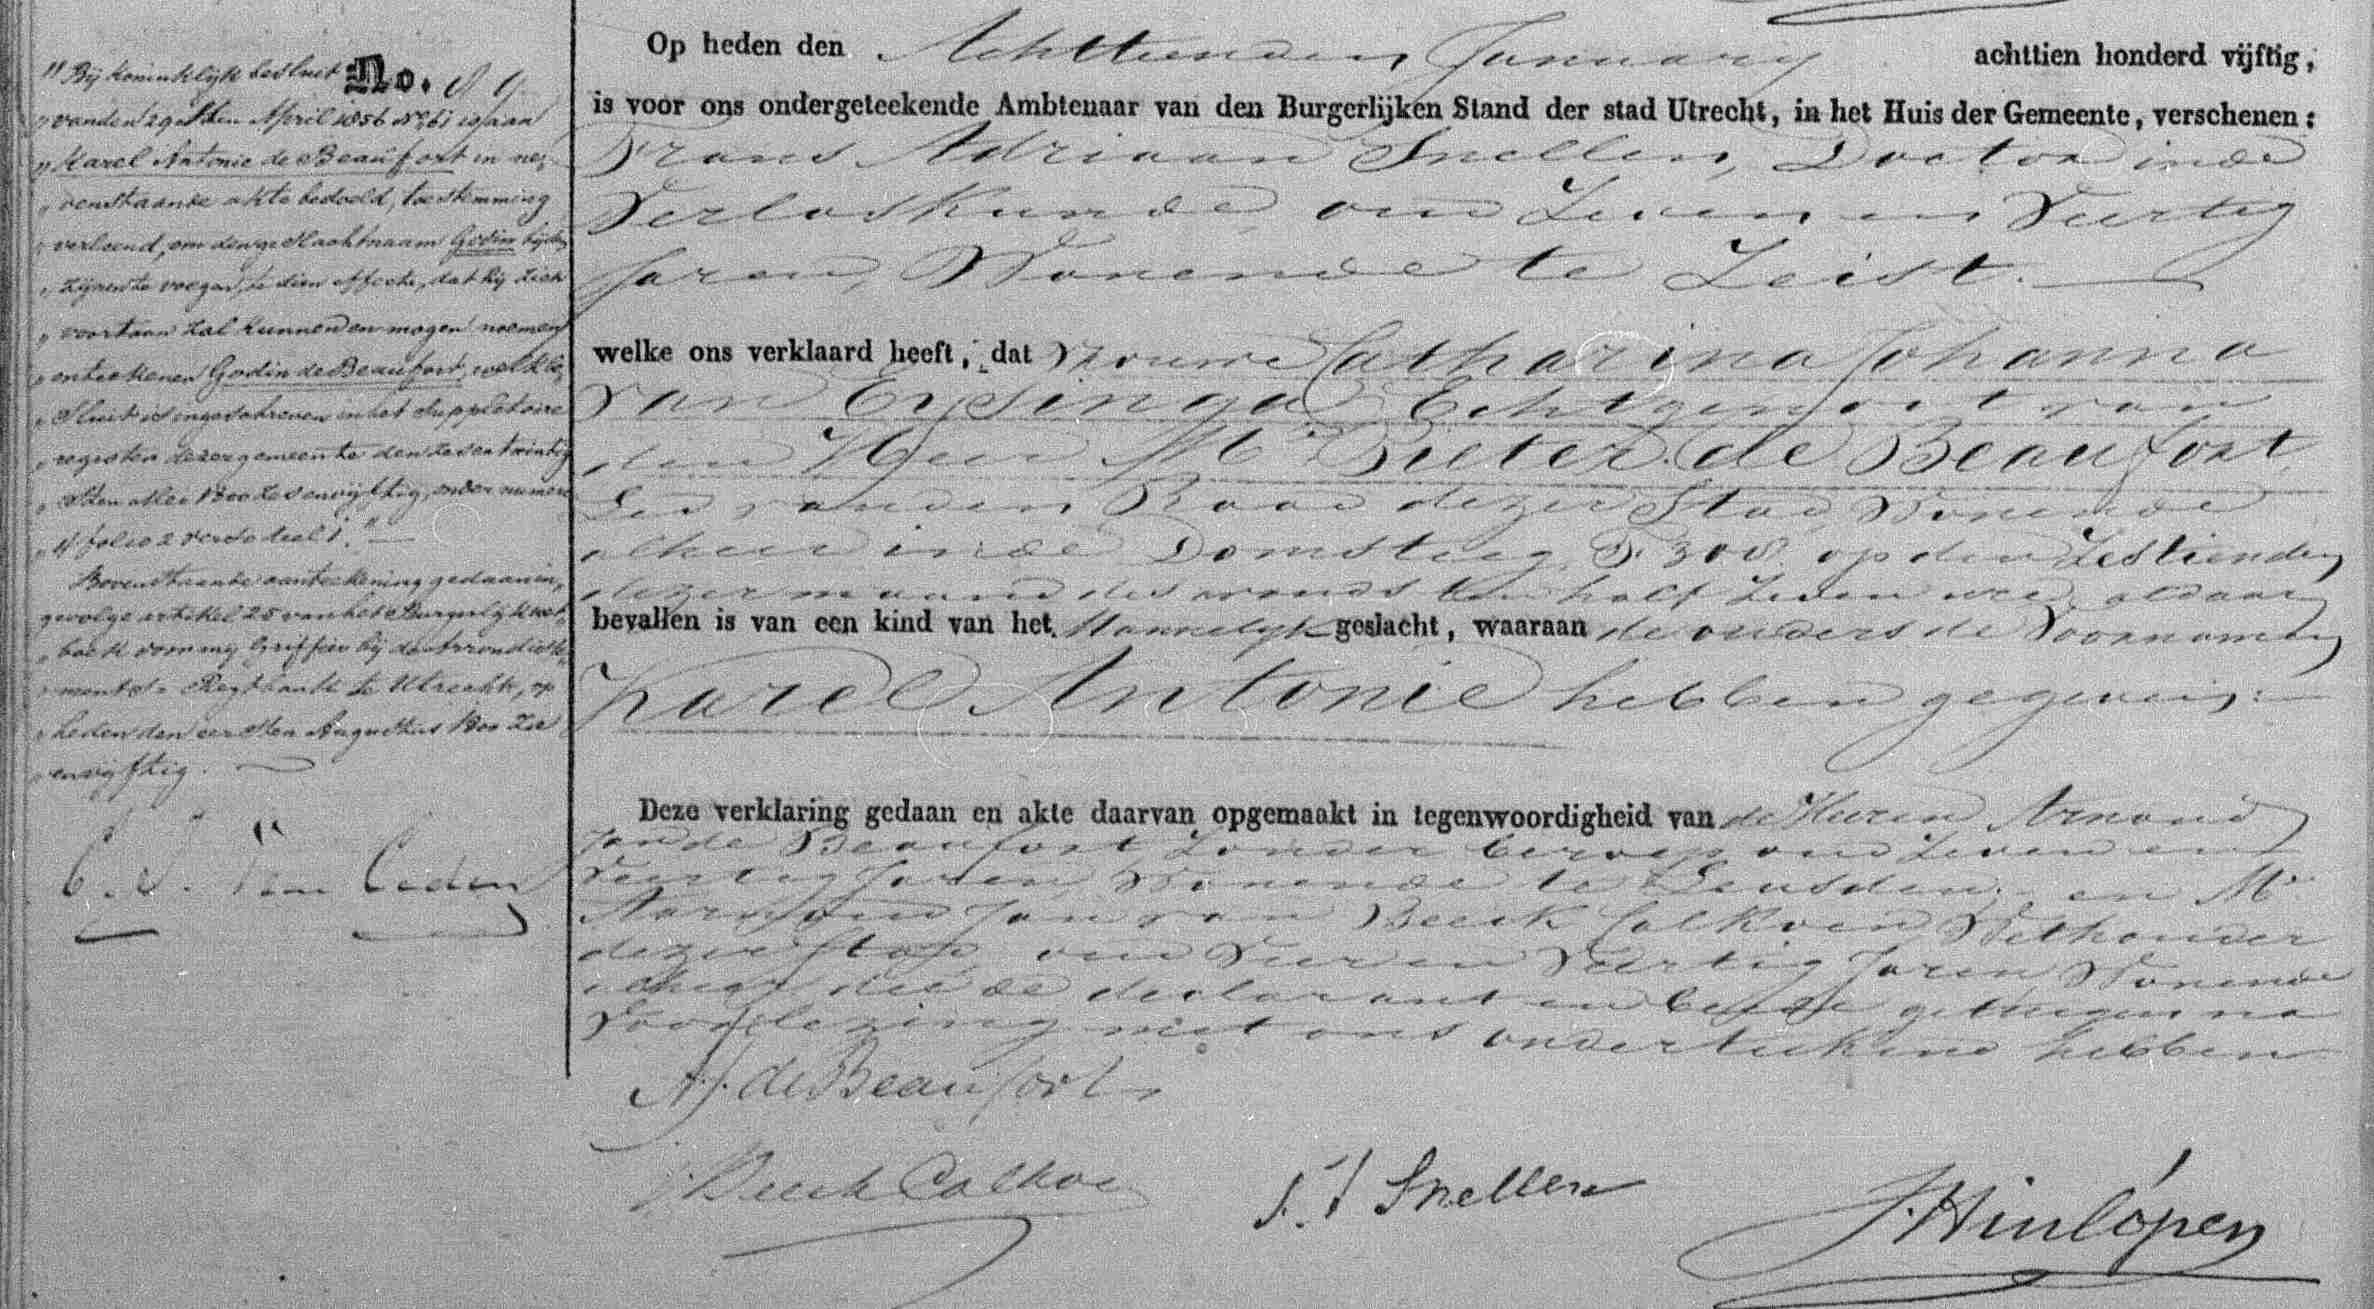 No. 89
"Bij koninklijk besluit
„van den 29sten April 1856 No 61 is aan
„Karel Antonie de Beaufort in ne-
„venstaande akte bedoeld, toestemming
„verleend, om den geslachtnaam Godin bij den
„zijnen te voegen, te dien effecte, dat hij zich
„voortaan zal kunnen en mogen noemen
„en teekenen Godin de Beaufort, welk be-
„sluit is ingeschreven in het suppletoire
„register dezer gemeente den zesentwintig
„sten 1800 zesenvijftig, onder numero
„4 folio 2 verso deel 1."
Bovenstaande aanteekening gedaan in-
gevolge artikel 25 van het Burgerlijk wet-
„boek door mij Griffier bij de Arrondisse-
„ments Regtbank te Utrecht, op
„heden den eersten Augustus 1800 zes
„envijftig.
Op heden den Achttienden January achttien honderd vijftig,
is voor ons ondergeteekende Ambtenaar van den Burgerlijken Stand der stad Utrecht, in het Huis der Gemeente, verschenen:
Frans Adriaan Snellen, Doctor in de
Verloskunde oud Zeven en Veertig
Jaren, Wonende te Zeist.
welke ons verklaard heeft, dat Vrouwe Catharina Johanna
van Eysinga Echtgenoot van
den Heer Mr Pieter de Beaufort
Lid van den Raad dezer Stad Wonende
alhier in de Domsteeg F. 308. op den Zestienden
dezer maand des avonds ten half Zeven ure, aldaar
bevallen is van een kind van het Mannelijk geslacht, waaraan de ouders de Voornamen
Karel Antonie hebben gegeven:
Deze verklaring gedaan en akte daarvan opgemaakt in tegenwoordigheid van de Heeren Arnoud
Jan de Beaufort Zonder beroep oud Zeven en
Veertig Jaren, Wonende te Leusden en Mr
Jan van Beeck Calkoen Wethouder
dezer Stad oud Vier en Veertig Jaren, Wonende
alhier die de declarant en beide getuigen na
Voorlezing met ons onderteekend hebben
A J. de Beaufort
v Beeck Calkoen
F. A Snellen
J. Hinlópen